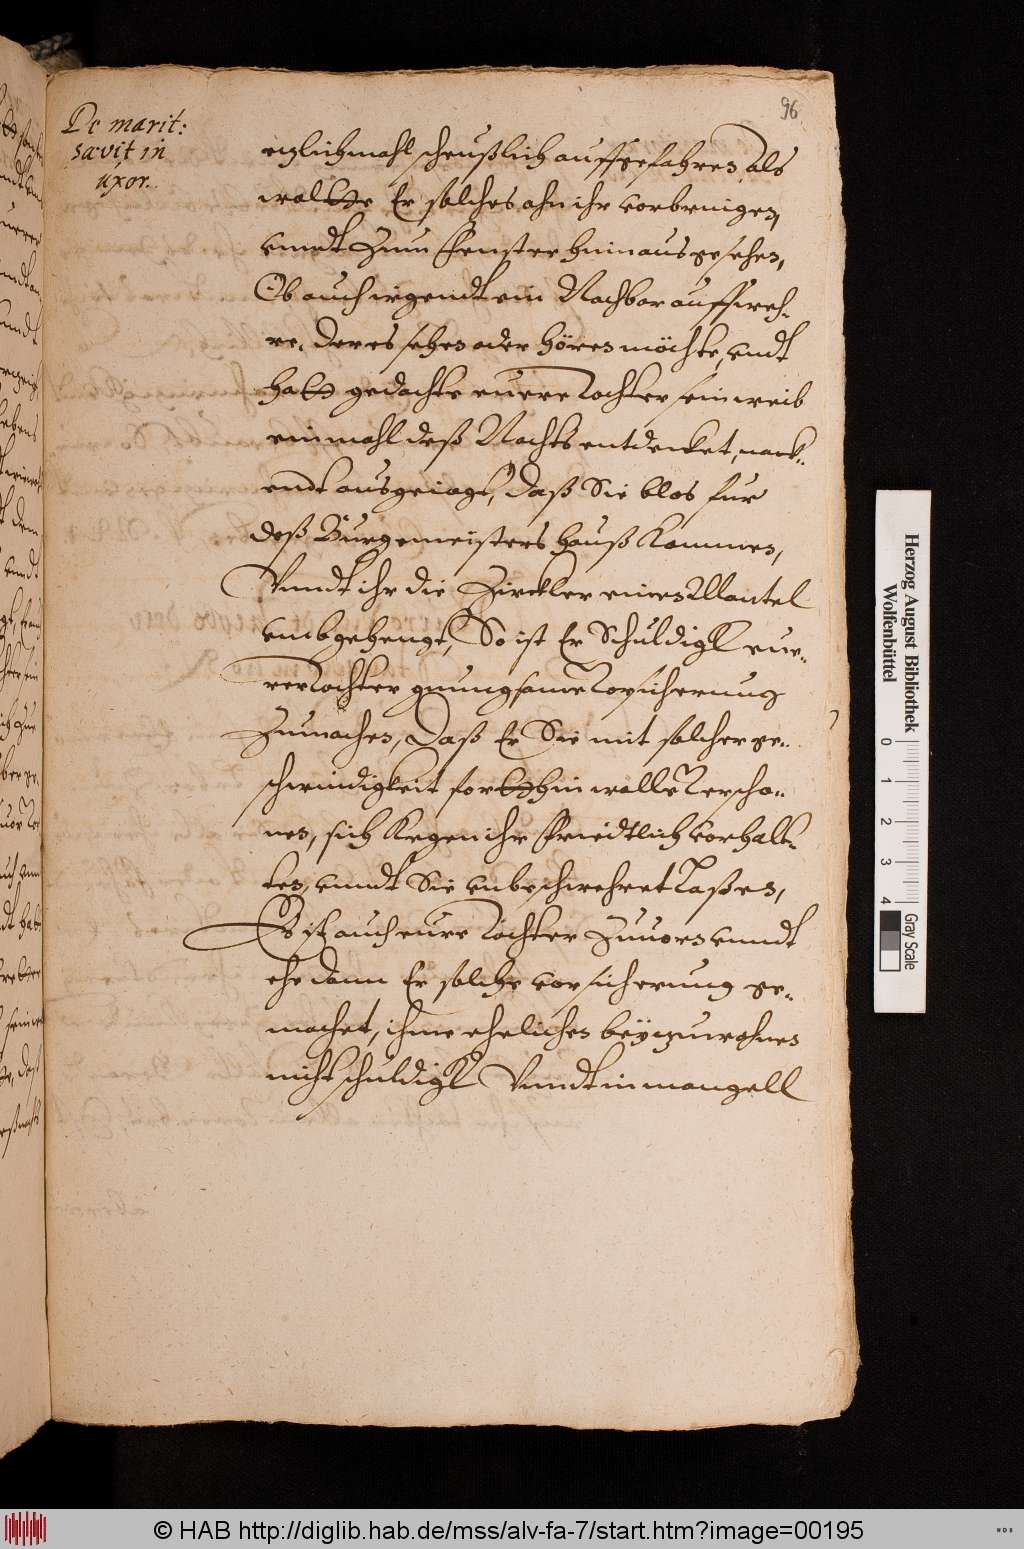 96
De marit:
sævit in
uxor.
etzlichmahl scheußlich auffgefahren, als
woltte Er solches ahn ihr vorbringen,
vnndt zum Fenster hinaus gesehen,
Ob auch irgendt ein Nachbar auff weh-
re, der es sehen oder hören möchte, vndt
hatt gedachte euere Tochter sein weib
einmahl deß Nachts entdecket, nack-
endt ausgeiagt, daß Sie blos fur
deß Bürgemeisters hauß kommen,
Vnndt ihr die Zirckler einen Mantel
vmbgehengt, So ist Er Schuldigk eue-
rer Tochter gnungsame Vorsicherung
Zumachen, daß Er Sie mit solcher ge-
schwindigkeit fortthin wolle Verscho-
nen, sich kegen ihr friedtlich vorhalt-
ten, vnndt Sie vnbeschwehret Laßen,
Es ist auch eure Tochter Zuuorn vnndt
ehe dann Er solche vorsicherung ge-
machet, ihme ehelichen beyzuwohnen
nicht schuldigk Vnndt in mangell
Herzog August Bibliothek
Wolfenbüttel
0 1 2 3 4
Gray Scale
© HAB http://diglib.hab.de/mss/alv-fa-7/start.htm?image=00195